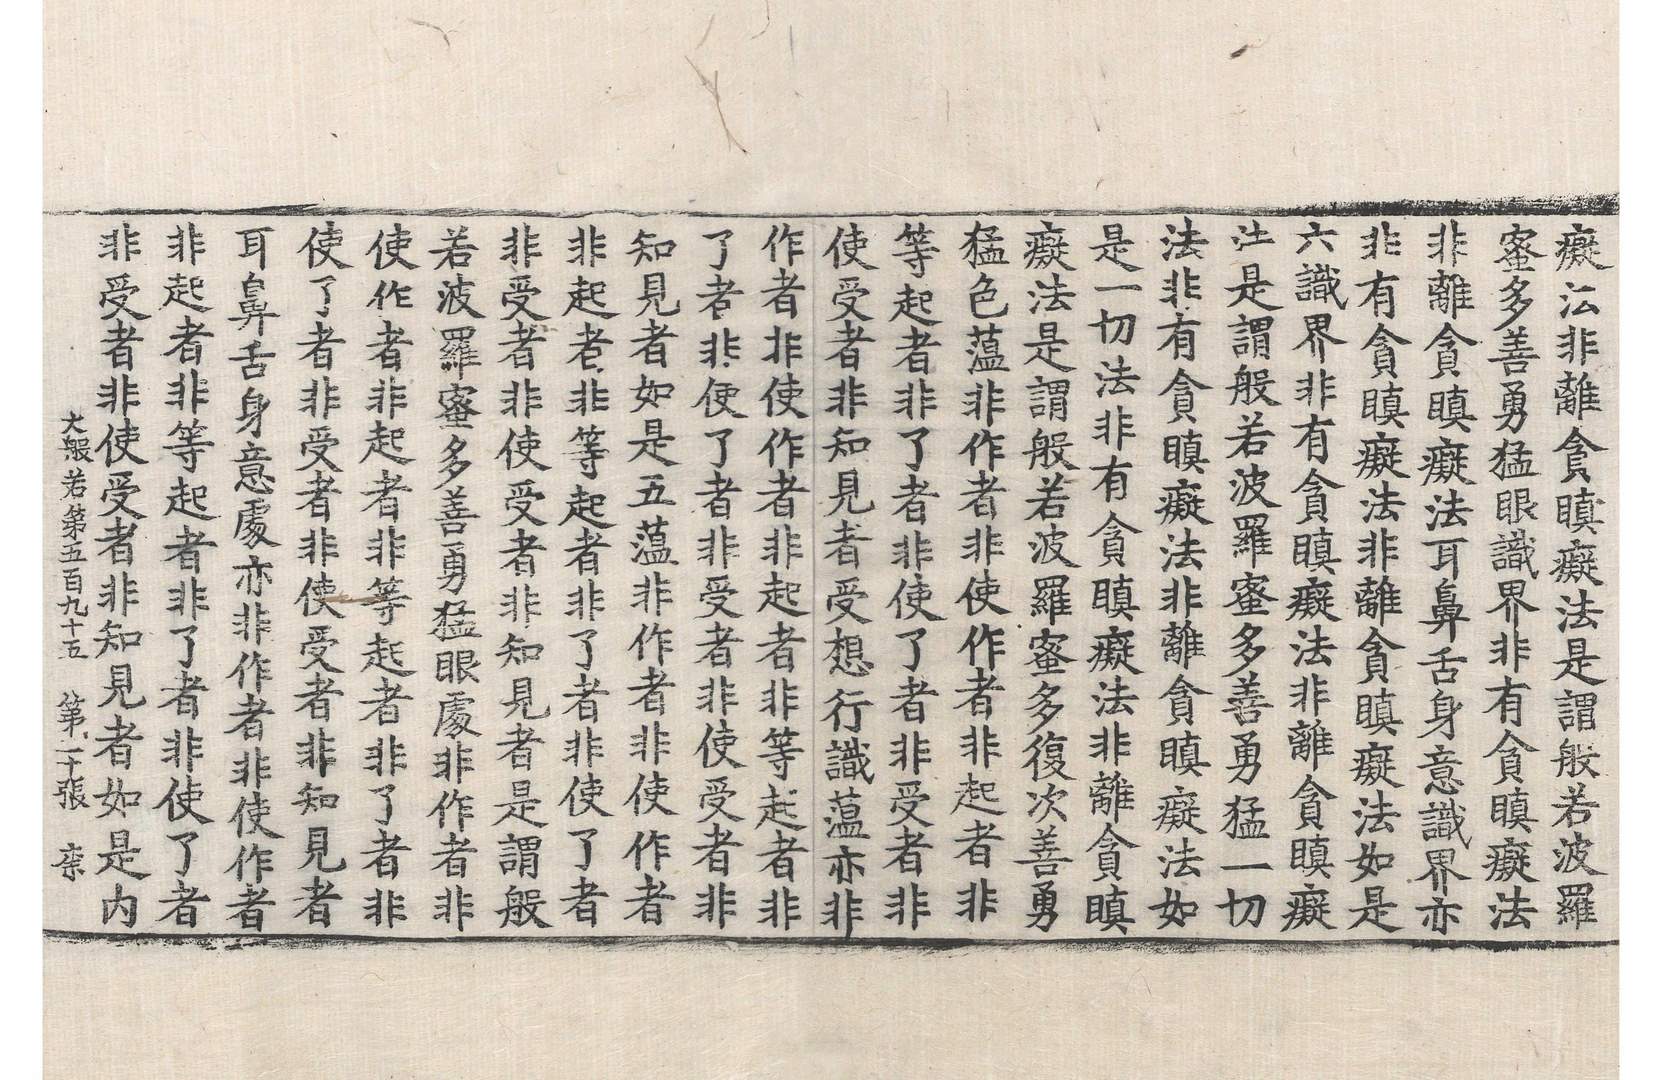 癡法非離貪瞋癡法是謂般若波羅
蜜多善勇猛眼識界非有貪瞋癡法
非離貪瞋癡法耳鼻舌身意識界亦
非有貪瞋癡法非離貪瞋癡法如是
六識界非有貪瞋癡法非離貪瞋癡
法是謂般若波羅蜜多善勇猛一切
法非有貪瞋癡法非離貪瞋癡法如
是一切法非有貪瞋癡法非離貪瞋
癡法是謂般若波羅蜜多復次善勇
猛色薀非作者非使作者非起者非
等起者非了者非使了者非受者非
使受者非知見者受想行識薀亦非
作者非使作者非起者非等起者非
了者非使了者非受者非使受者非
知見者如是五薀非作者非使作者
非起者非等起者非了者非使了者
非受者非使受者非知見者是謂般
若波羅蜜多善勇猛眼處非作者非
使作者非起者非等起者非了者非
使了者非受者非使受者非知見者
耳鼻舌身意處亦非作者非使作者
非起者非等起者非了者非使了者
非受者非使受者非知見者如是内
大般若第五百九十五 第二十張 柰